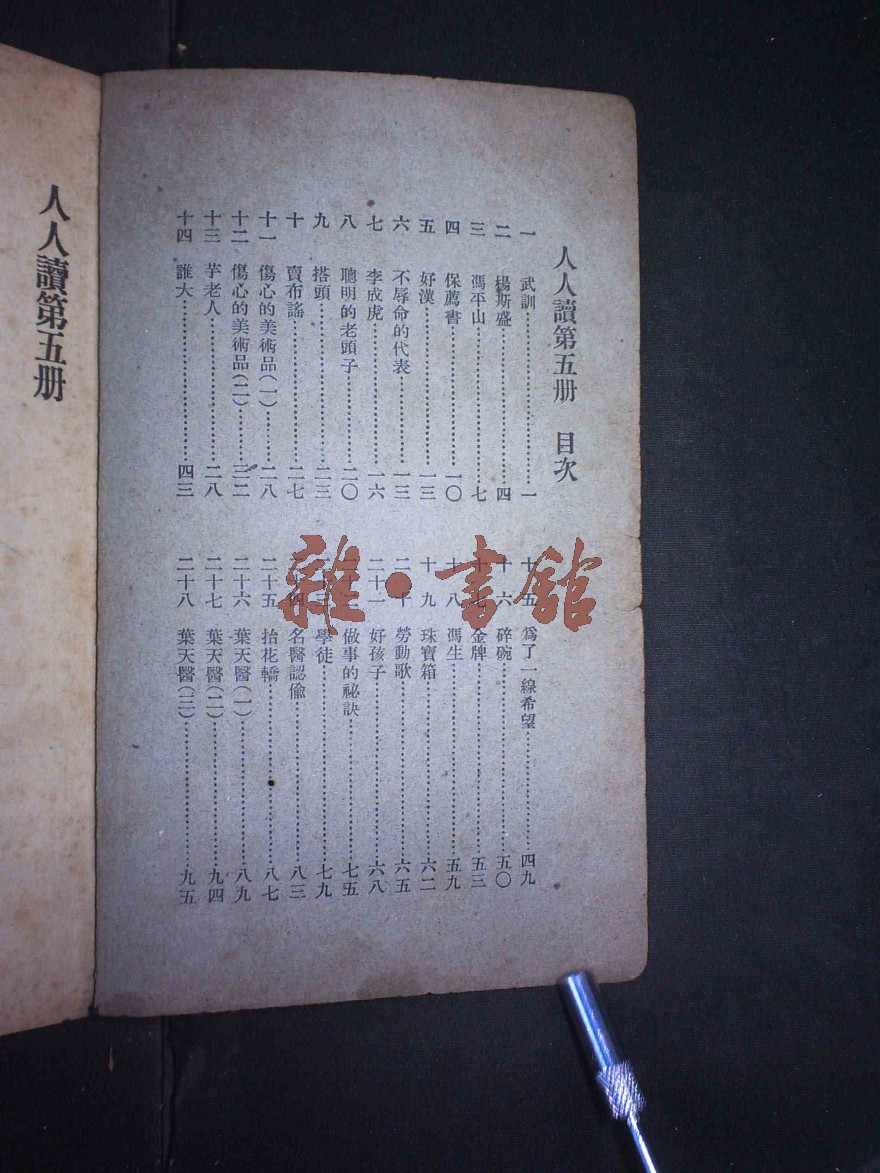 人人讀第五册　目次
一　武訓……一
二　楊斯盛……四
三　馮平山……七
四　保薦書……一〇
五　好漢……一三
六　不辱命的代表……一三
七　李成虎……一六
八　聰明的老頭子……二〇
九　搭頭……二三
十　賣布謠……二七
十一　傷心的美術品(一)……二八
十二　傷心的美術品(二)……三二
十三　芋老人……二八
十四　誰大……四三
十五　爲了一線希望……四九
十六　碎碗……五〇
十七　金牌……五三
十八　馮生……五九
十九　珠寶箱……六二
二十　勞動歌……六五
二十一　好孩子……六八
二十二　做事的祕訣……七五
二十三　學徒……七九
二十四　名醫認偸……八三
二十五　抬花轎……八七
二十六　葉天醫(一)……八九
二十七　葉天醫(二)……九四
二十八　葉天醫(三)……九五
人人讀第五册
雜·書館